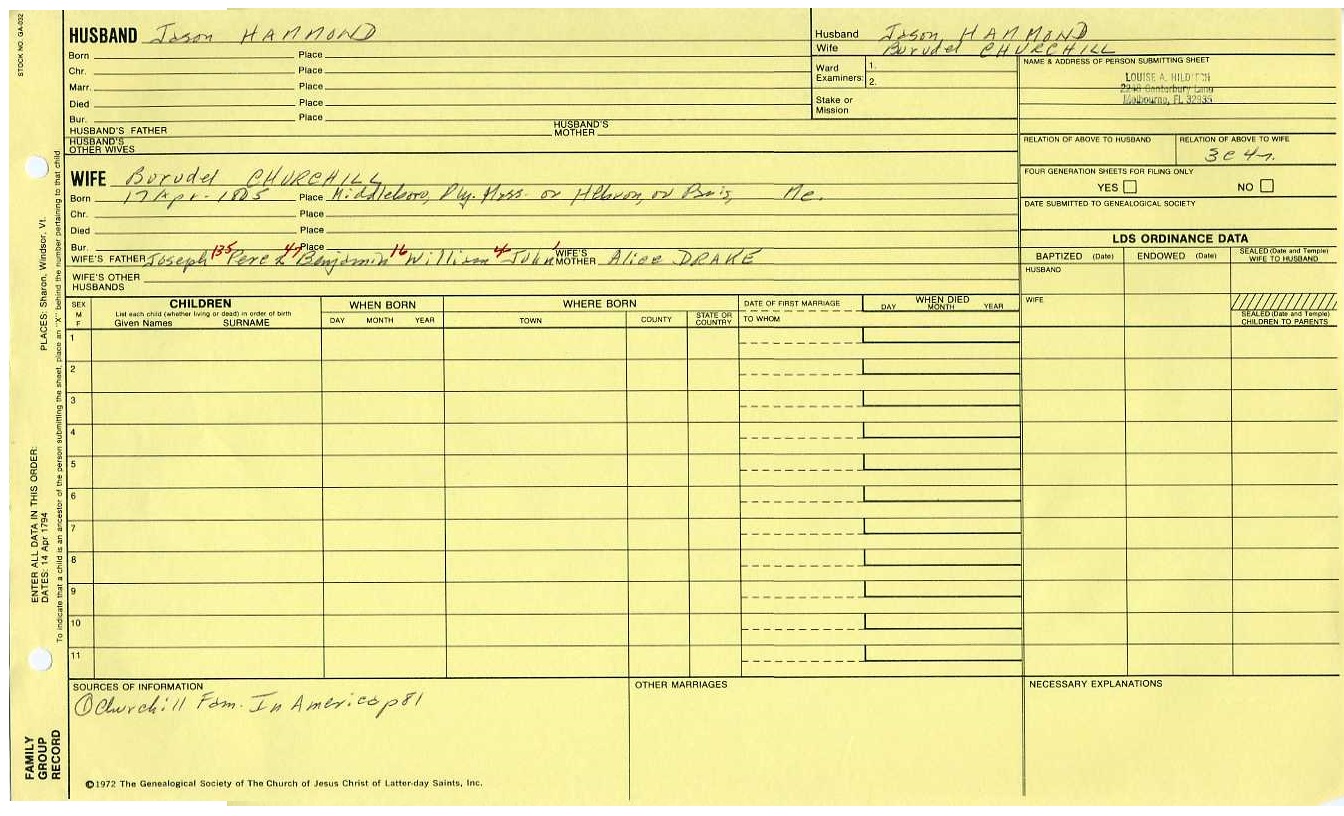 STOCK NO. GA-032
HUSBAND Jason HAMMOND
Born Place
Chr. Place
Marr. Place
Died Place
Bur. Place
HUSBAND'S FATHER HUSBAND'S MOTHER
HUSBAND'S OTHER WIVES
Husband Jason, HAMMOND
Wife Burudel CHURCHILL
Ward Examiners: 1. 2.
Stake or Mission
NAME & ADDRESS OF PERSON SUBMITTING SHEET
LOUISE A.
Canterbury Lane
Melbourne, FL 32935
RELATION OF ABOVE TO HUSBAND RELATION OF ABOVE TO WIFE
3c4r.
FOUR GENERATION SHEETS FOR FILING ONLY
YES NO
DATE SUBMITTED TO GENEALOGICAL SOCIETY
WIFE Burudel CHURCHILL
Born 17 Apr. 1805 Place Middleboro, Ply. Mass. or Hebron, or Me.
Chr. Place
Died Place
Bur. Place
WIFE'S FATHER Joseph 135 Perez 47 Benjamin 16 William 4 John 1 WIFE'S MOTHER Alice DRAKE
WIFE'S OTHER HUSBANDS
LDS ORDINANCE DATA
BAPTIZED (Date) ENDOWED (Date) SEALED (Date and Temple) WIFE TO HUSBAND
HUSBAND
WIFE
SEALED (Date and Temple) CHILDREN TO PARENTS
SEX M F
CHILDREN
List each child (whether living or dead) in order of birth
Given Names SURNAME
WHEN BORN
DAY MONTH YEAR
WHERE BORN
TOWN COUNTY STATE OR COUNTRY
DATE OF FIRST MARRIAGE
TO WHOM
WHEN DIED
DAY MONTH YEAR
1
2
3
4
5
6
7
8
9
10
11
SOURCES OF INFORMATION
① Churchill Fam. In America p81
OTHER MARRIAGES
NECESSARY EXPLANATIONS
©1972 The Genealogical Society of The Church of Jesus Christ of Latter-day Saints, Inc.
FAMILY GROUP RECORD
ENTER ALL DATA IN THIS ORDER:
DATES: 14 Apr 1794
PLACES: Sharon, Windsor, Vt.
To indicate that a child is an ancestor of the person submitting the sheet, place an "X" behind the number pertaining to that child